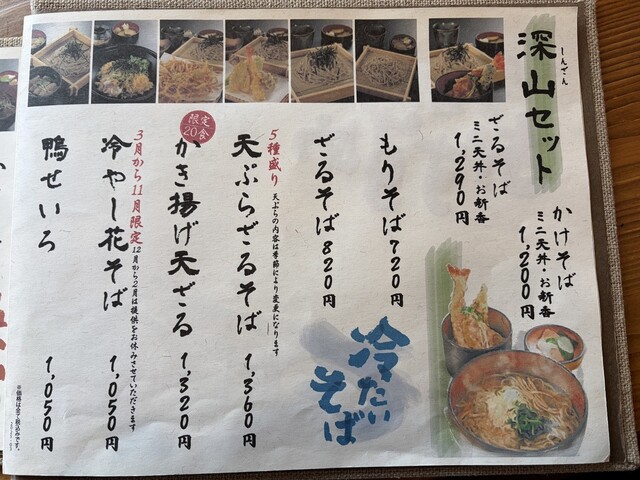 深山セット
しんざん
かけそば
ミニ天丼・お新香
1,200円
ざるそば
ミニ天丼・お新香
1,290円
冷たい
そば
もりそば 720円
ざるそば 820円
5種盛り 天ぷらの内容は季節により変更になります
天ぷらざるそば 1,360円
限定
20食
かき揚げ天ざる 1,320円
3月から11月限定 12月から2月は提供をお休みさせていただきます
冷やし花そば 1,050円
鴨せいろ 1,050円
※価格は全て税込みです。